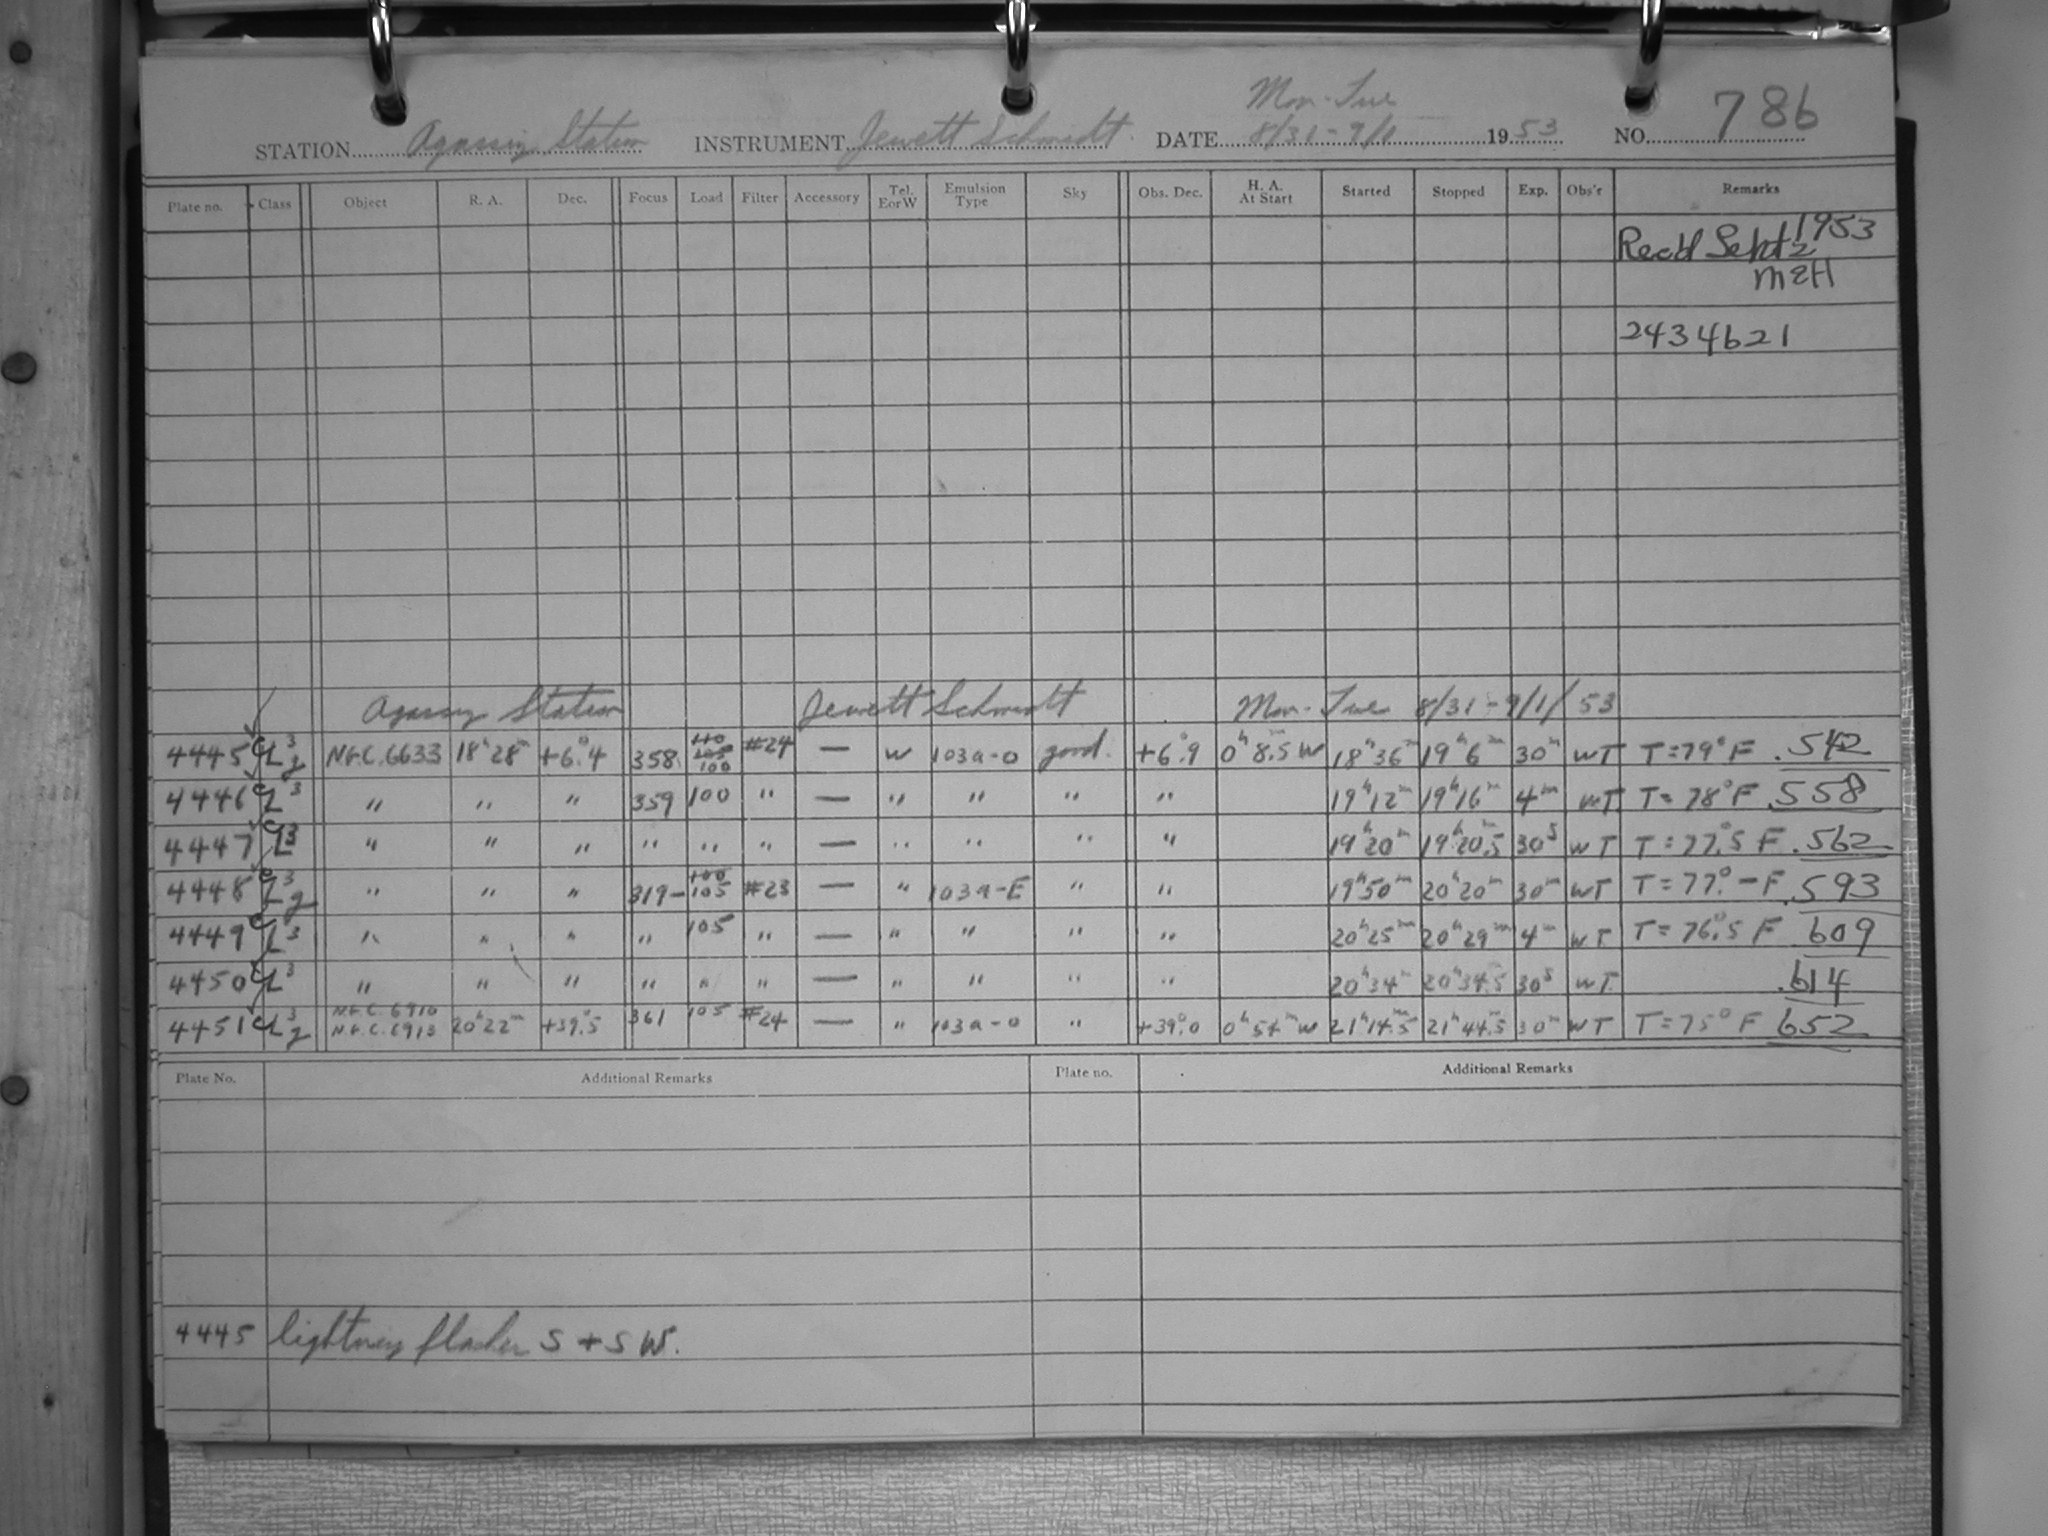 Mon-Tue
STATION Agassiz Station INSTRUMENT Jewett Schmidt DATE 8/31-9/1 1953 NO. 786
Plate no. Class Object R. A. Dec. Focus Load Filter Accessory Tel. E or W Emulsion Type Sky Obs. Dec. H. A. At Start Started Stopped Exp. Obs'r Remarks
Rec'd Sept 2 1953
MEH
2434621
Agassiz Station Jewett Schmidt Mon-Tue 8/31-9/1/53
4445 N.G.C. 6633 18h 28m +6°.4 358 110 105 100 #24 — W 103a-O good. +6°.9 0h 8.5m W 18h 36m 19h 6m 30m WT T=79°F .542
4446 " " " 359 100 " — " " " " 19h 12m 19h 16m 4m WT T=78°F .558
4447 " " " " " " — " " " " 19h 20m 19h 20m.5 30s WT T=77°.5 F .562
4448 " " " 319- 100 105 #23 — " 103a-E " " 19h 50m 20h 20m 30m WT T=77°.-F .593
4449 " " " " 105 " — " " " " 20h 25m 20h 29m 4m WT T=76°.5 F 609
4450 " " " " " " — " " " " 20h 34m 20h 34m.5 30s WT .614
4451 N.G.C. 6910 N.G.C. 6913 20h 22m +39°.5 361 105 #24 — " 103a-O " +39°.0 0h 54m W 21h 14m.5 21h 44m.5 30m WT T=75°F 652
Plate No. Additional Remarks Plate no. Additional Remarks
4445 lightning flashes S + SW.